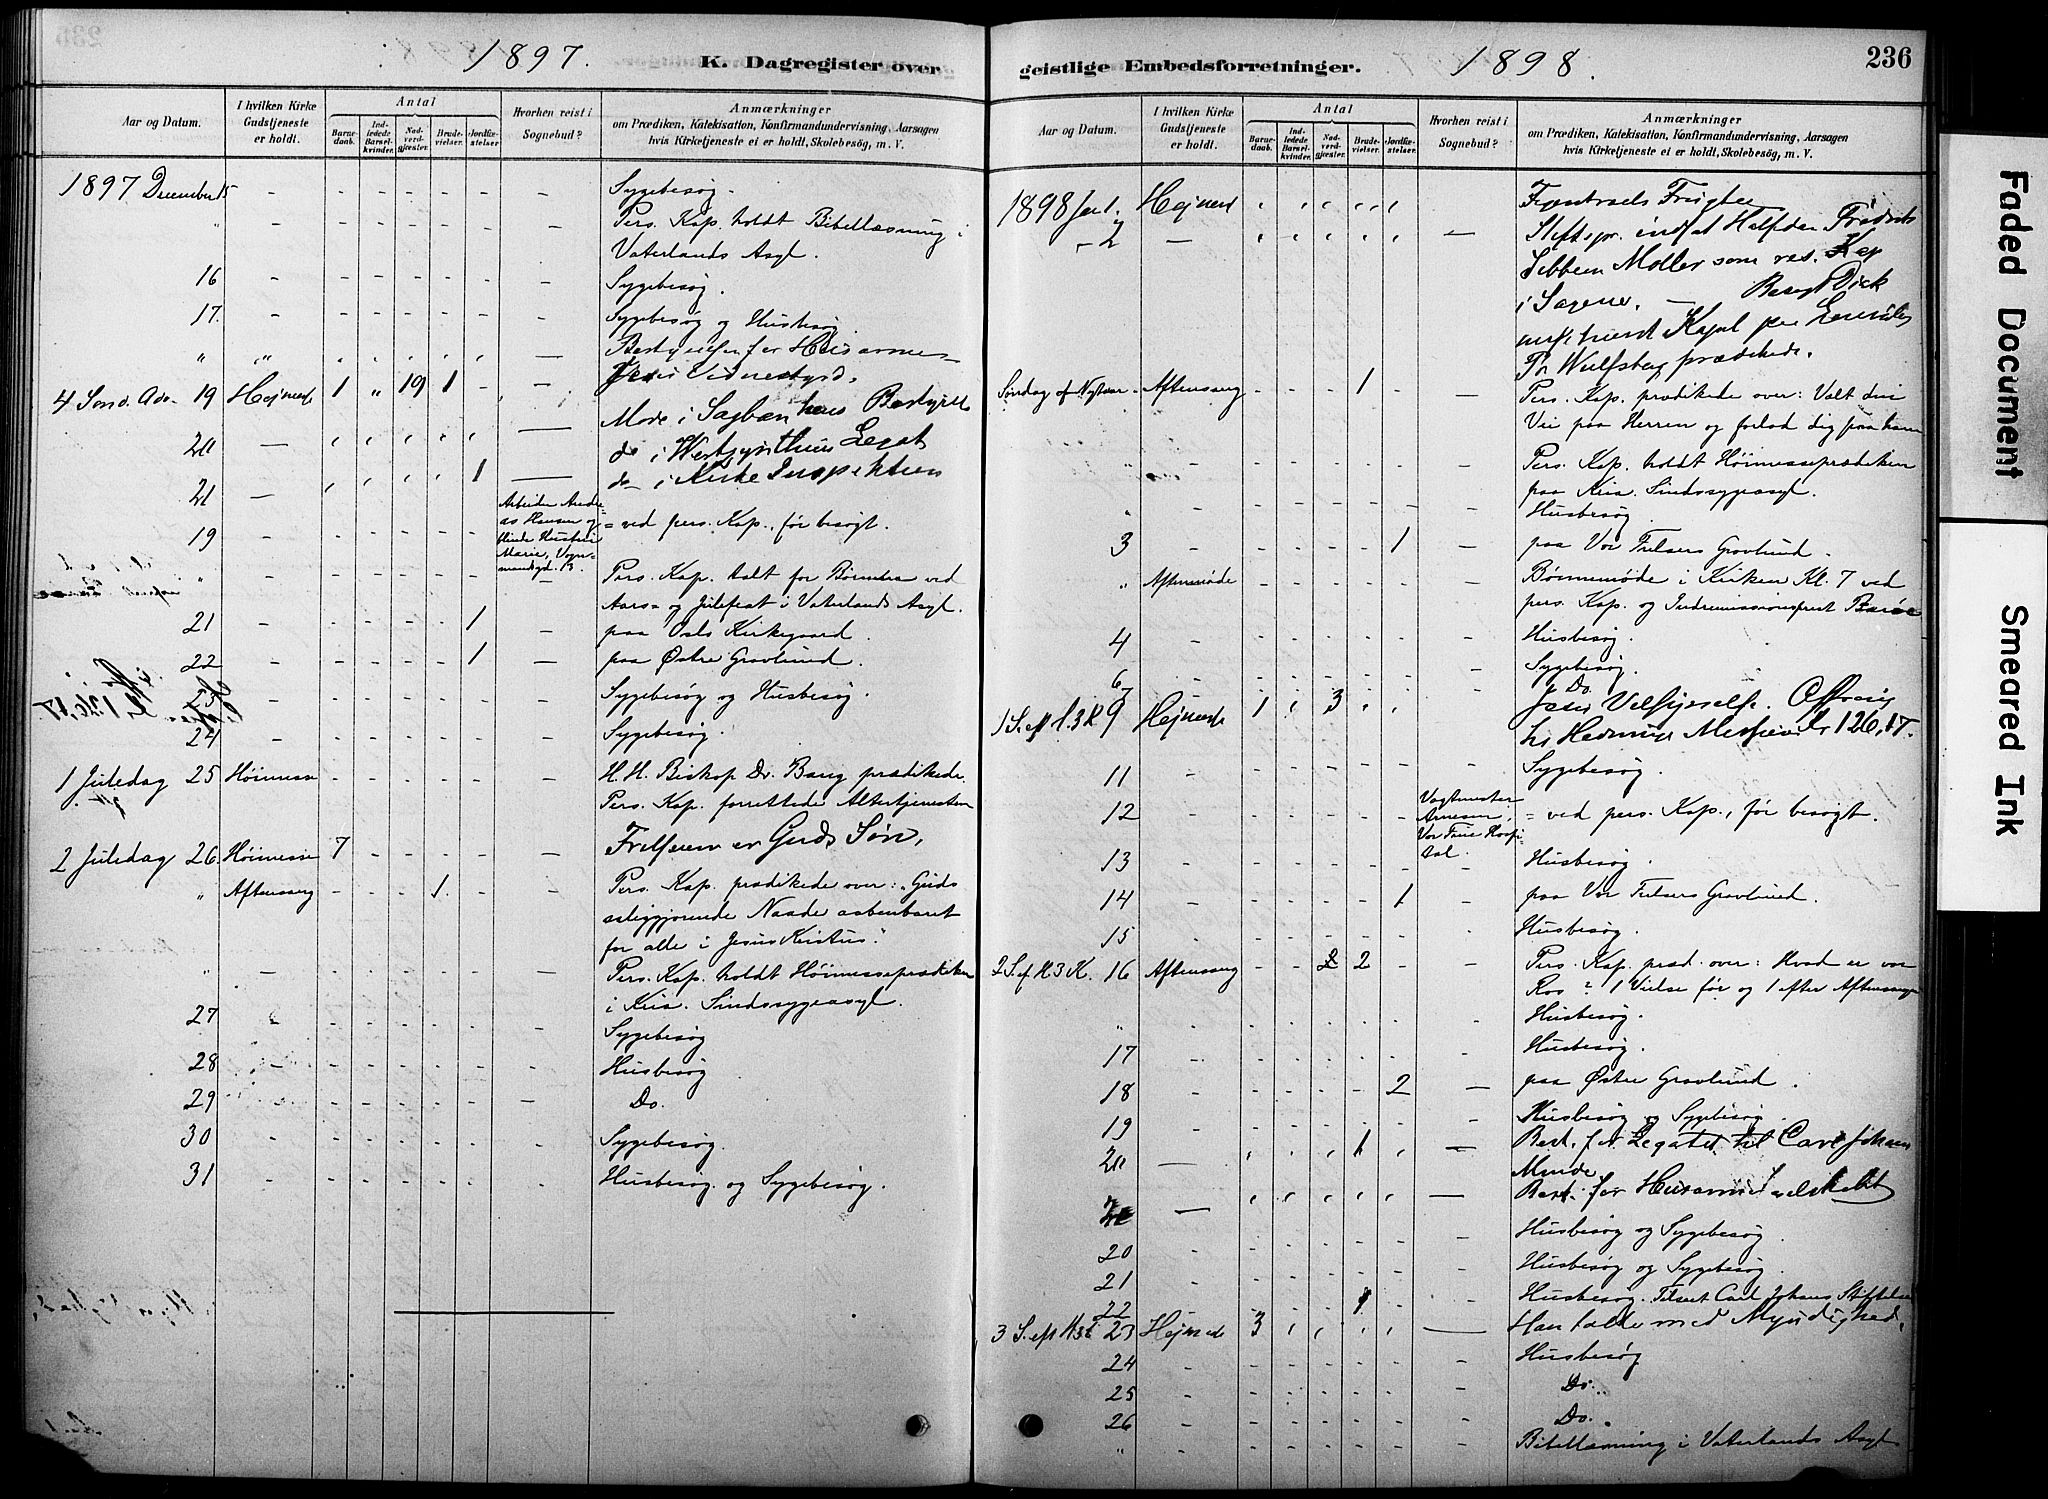 1897. K. Dagregister over
Aar og Datum.
I hvilken Kirke Gudstjeneste er holdt.
Antal
Barne-daab.
Ind-ledede Barsel-kvinder.
Nad-verd-gjæster.
Brude-vielser.
Jordfæ-stelser.
Hvorhen reist i Sognebud?
Anmærkninger
om Prædiken, Katekisation, Konfirmandundervisning, Aarsagen
hvis Kirketjeneste ei er holdt, Skolebesög, m. V.
1897 December 15 - - - - - - - Sygebesøg.
" - - - - - - - Pers. Kap. holdt Bibellæsning i
Vaterlands Asyl.
16 - - - - - - - Sygebesøg.
17. - - - - - - - Sygebesøg og Husbesøg.
" " - Bestyrelsen for Husarmes
4 Sønd. Adv. 19 Høimesse 1 " 19 1 - - Jesu Vidnesbyrd.
Møde i Bestyrelse
20 - do i Legat
21 - 1 - do i Kirke Inspektion
19 - - - - - - Arbeider Andre-
as Hansen og
blinde Hustru
Marie, Vogn-
mandsgd. 13.
= ved pers. Kap., før besøgt.
" - - - - - - - Pers. Kap. talt for Børnene ved
Aars- og Julefest i Vaterlands Asyl.
21 - - - - - 1 - paa Oslo Kirkegaard.
22 - - - - - 1 - paa Østre Gravlund.
23 - - - - - - - Sygebesøg og Husbesøg.
24 - - - - - - - Sygebesøg.
1 Juledag 25 Høimesse - - - - - - H. H. Biskop Dr. Bang prædikede.
Pers. Kap. forrettede Altertjenesten
2 Juledag 26 Høimesse 7 - - - - - Frelseren er Guds Søn.
" Aftensang - - - 1. - - Pers. Kap. prædikede over: "Guds
saliggjørende Naade aabenbaret
for alle i Jesus Kristus."
" - - - - - - - Pers. Kap. holdt Høimesseprædiken
i Kria. Sindssygeasyl.
27 - - - - - - - Sygebesøg
28 - - - - - - - Husbesøg
29 - - - - - - - Do.
30 - - - - - - - Sygebesøg.
31 - - - - - - - Husbesøg. og Sygebesøg.
geistlige Embedsforretninger. 1898. 236
Aar og Datum.
I hvilken Kirke Gudstjeneste er holdt.
Antal
Barne-daab.
Ind-ledede Barsel-kvinder.
Nad-verd-gjæster.
Brude-vielser.
Jordfæ-stelser.
Hvorhen reist i Sognebud?
Anmærkninger
om Prædiken, Katekisation, Konfirmandundervisning, Aarsagen
hvis Kirketjeneste ei er holdt, Skolebesög, m. V.
1898 Jan 1. Høimesse -
- 2 - - Stiftspr. indsat Halfdan Fredrik
Møller som res. Kap
i Sagene. - Dick
Kapel paa
Pr Wulfsberg prædikede.
Søndag ef Nytaar - Aftensang - - - 1 - - Pers. Kap. prædikede over: Valt din
Vei paa Herren og forlad dig paa ham
" - - - - - - - Pers. Kap. holdt Høimesseprædiken
paa Kria. Sindssygeasyl.
" - - - - - - - Husbesøg
3 - - - - - 1 - paa Vor Frelsers Gravlund.
" Aftenmøde - - - - - - Bønnemøde i Kirken Kl. 7 ved
pers. Kap. og Indremissionsprest
4 - - - - - - - Husbesøg.
6 - - - - - - - Sygebesøg.
7 - - - - - - - Do.
1 S. ef h. 3 K 9 Høimesse 1 3 Jesu Offring
Kr 126,17.
11 - - - - - - - Sygebesøg.
12 - - - - - - Vagtmester
Arnesen,
Vor Frue Hospi-
tal.
= ved pers. Kap., før besøgt.
13 - - - - - - Husbesøg.
14 - - - - - 1 - paa Vor Frelsers Gravlund.
15 - - - - - - - Husbesøg.
2 S. ef. h 3 K. 16 Aftensang - - 2 2 - - Pers. Kap. præd. over: Hvad er vor
Ros? 1 Vielse før og 1 efter Aftensangen
" - - - - - - - Husbesøg.
17 - - - - - - - Husbesøg.
18 - - - - - 2 - paa Østre Gravlund.
19 - - - - - - - Husbesøg og Sygebesøg.
20 - 1 - Best. for Legatet til Carl Johans
Minde
- Best. for
- - - - - - - Husbesøg og Sygebesøg.
20 - - - - - - - Husbesøg og Sygebesøg.
21 - - - - - - -
22 1 Husbesøg. Carl Johans Stiftelse
3 S. ef h 3 K 23 Høimesse 3 - Han talte med Myndighed.
24 - - - - - - - Husbesøg
25 - - - - - - - Do.
26 - - - - - - - Do.
" - - - - - - - Bibellæsning i Vaterlands Asyl
Faded Document
Smeared Ink